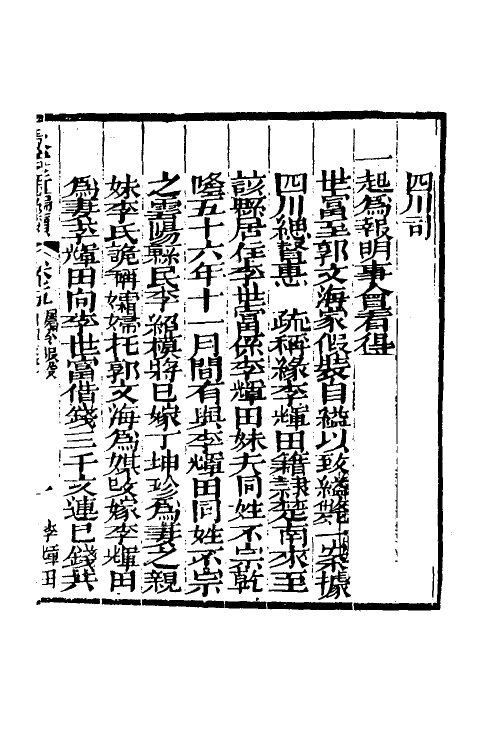 四川司
一起為報明事會看得
世富至郭文海家假裝自縊以致縊斃一案據
四川總督惠　疏稱緣李輝田籍隸楚南來至
該縣居住李世富係李輝田妹夫同姓不宗乾
隆五十六年十一月間有與李輝田同姓不宗
之雲陽縣民李紹模將已嫁丁坤珍為妻之親
妹李氏詭稱孀婦托郭文海為媒改嫁李輝田
為妻李輝田向李世富借錢三千文連已錢共
李輝田